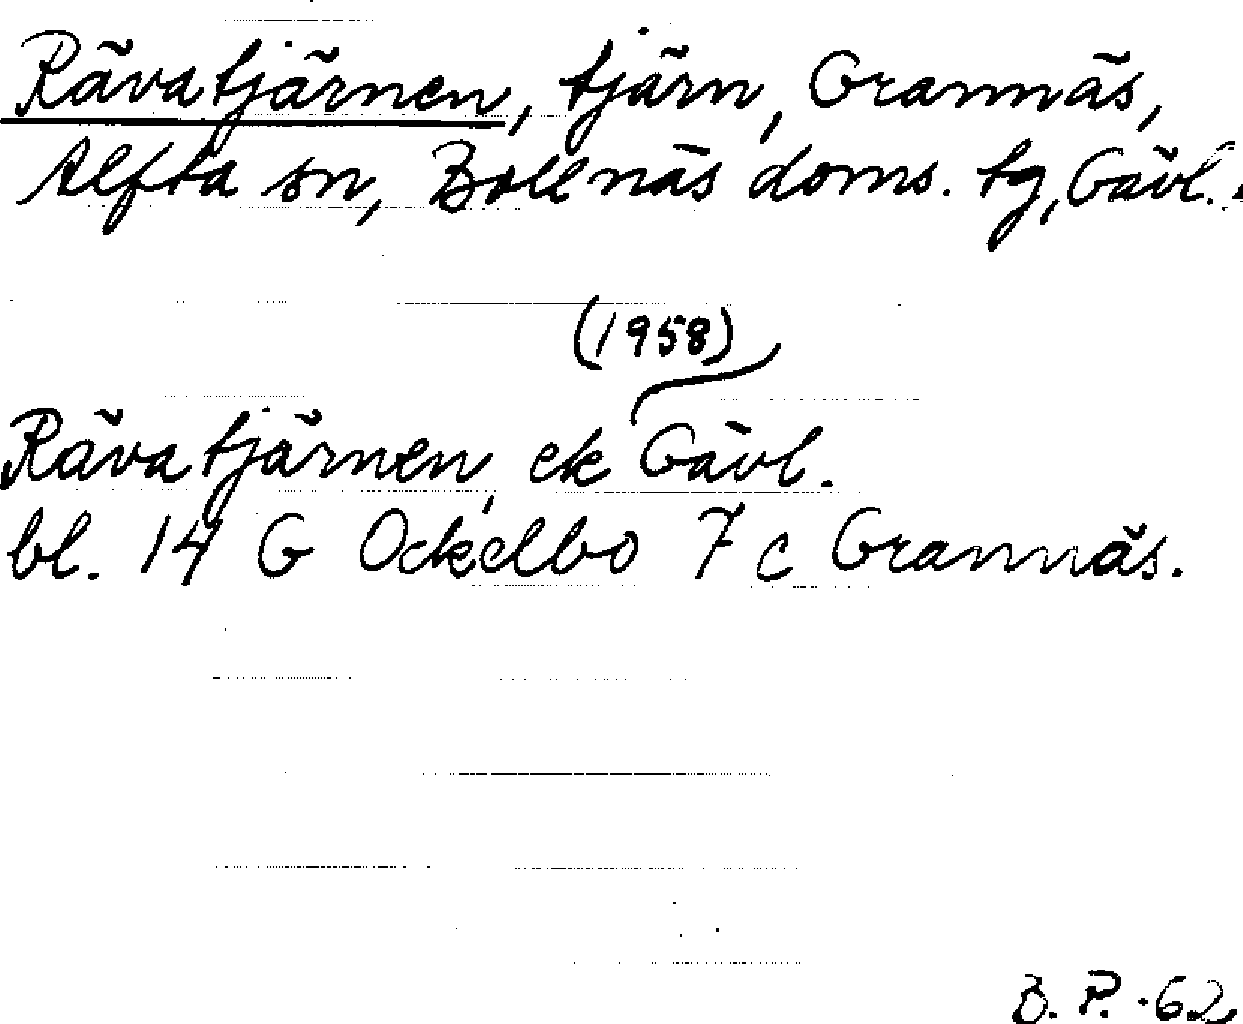 Rävatjärnen, tjärn, Grannäs,
Alfta sn, Bollnäs doms. tg, Gävl.
(1958)
Rävatjärnen, ek Gävl.
bl. 14 G Ockelbo 7 c Grannäs.
B. P. -62